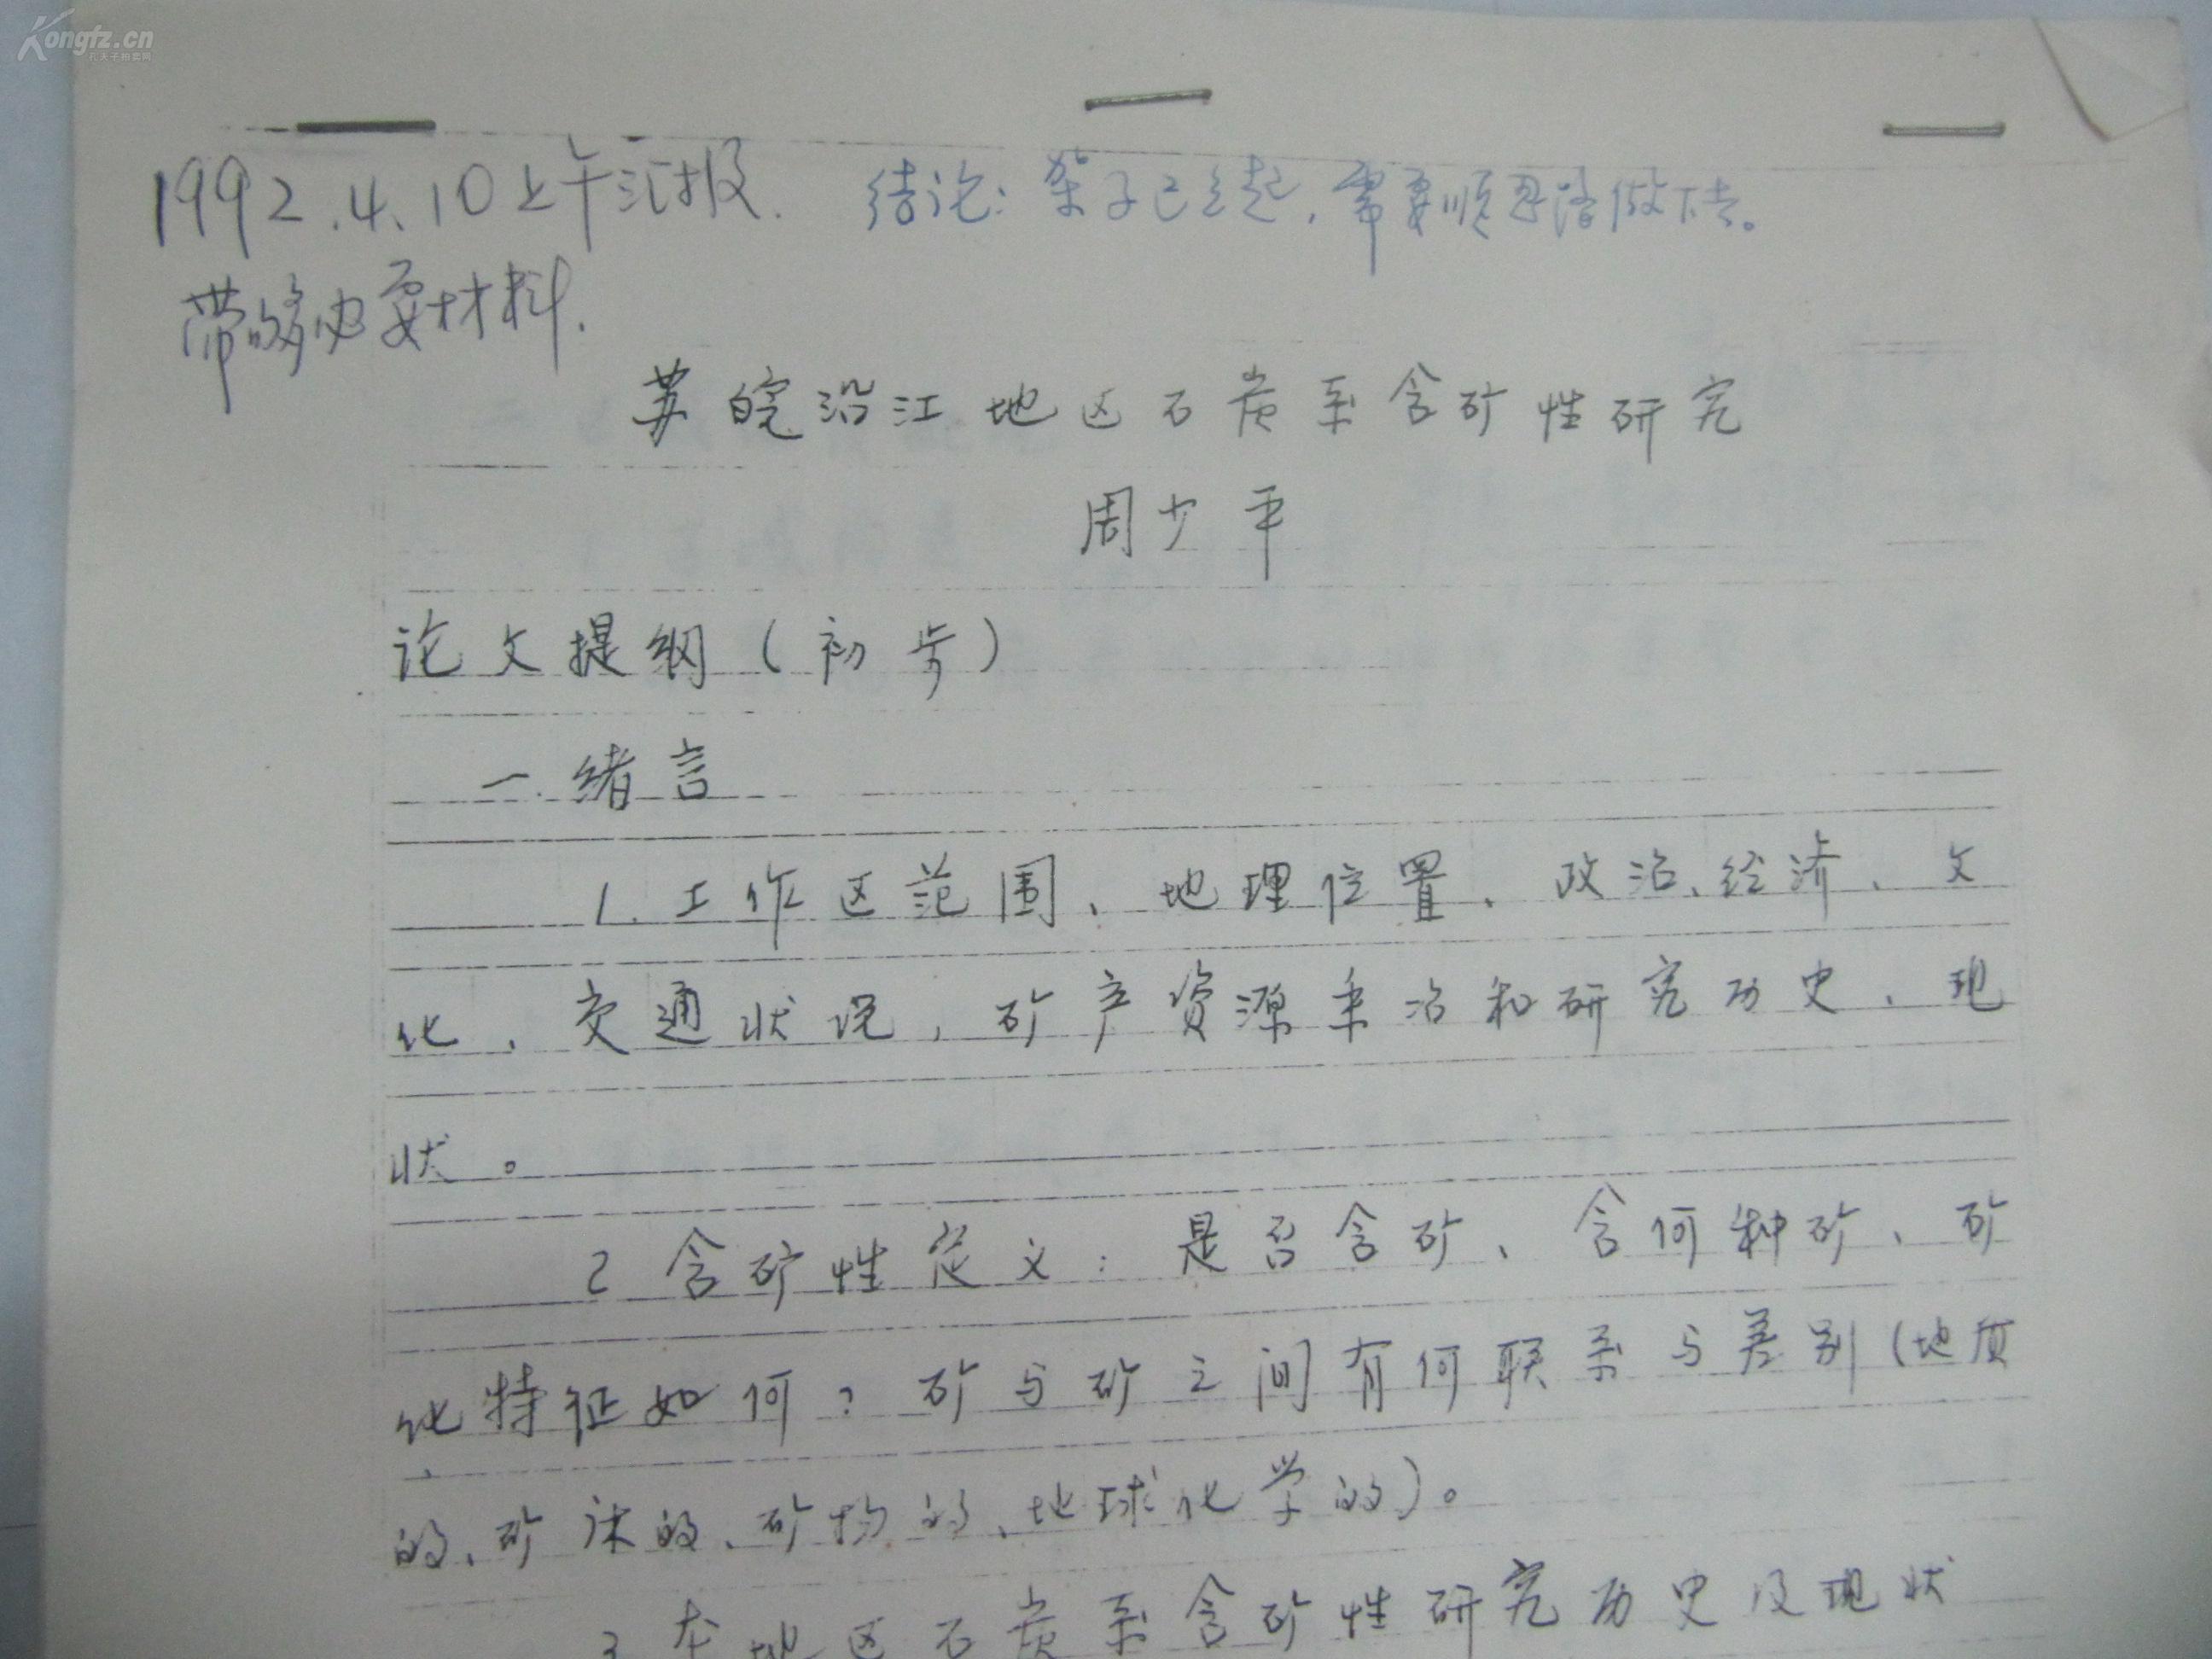 Kongfz.cn
孔夫子拍卖网
1992.4.10上午汇报. 结论:架子已立起,需要顺思路做下去。
带够必要材料.
苏皖沿江地区石炭系含矿性研究
周少平
论文提纲(初步)
一.绪言
1.工作区范围、地理位置、政治、经济、文
化、交通状况,矿产资源采冶和研究历史、现
状。
2 含矿性定义:是否含矿、含何种矿、矿
化特征如何?矿与矿之间有何联系与差别(地质
的、矿床的、矿物的、地球化学的)。
3 本地区石炭系含矿性研究历史及现状